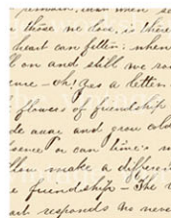 remain, than when s
n those we love, is there
heart can fetter: when
ll on and still no
ence - oh! yes a letter
flowers of friendship
de away and grow cold
sence or can time's
llow make a differen
e friendship - The
art responds no never